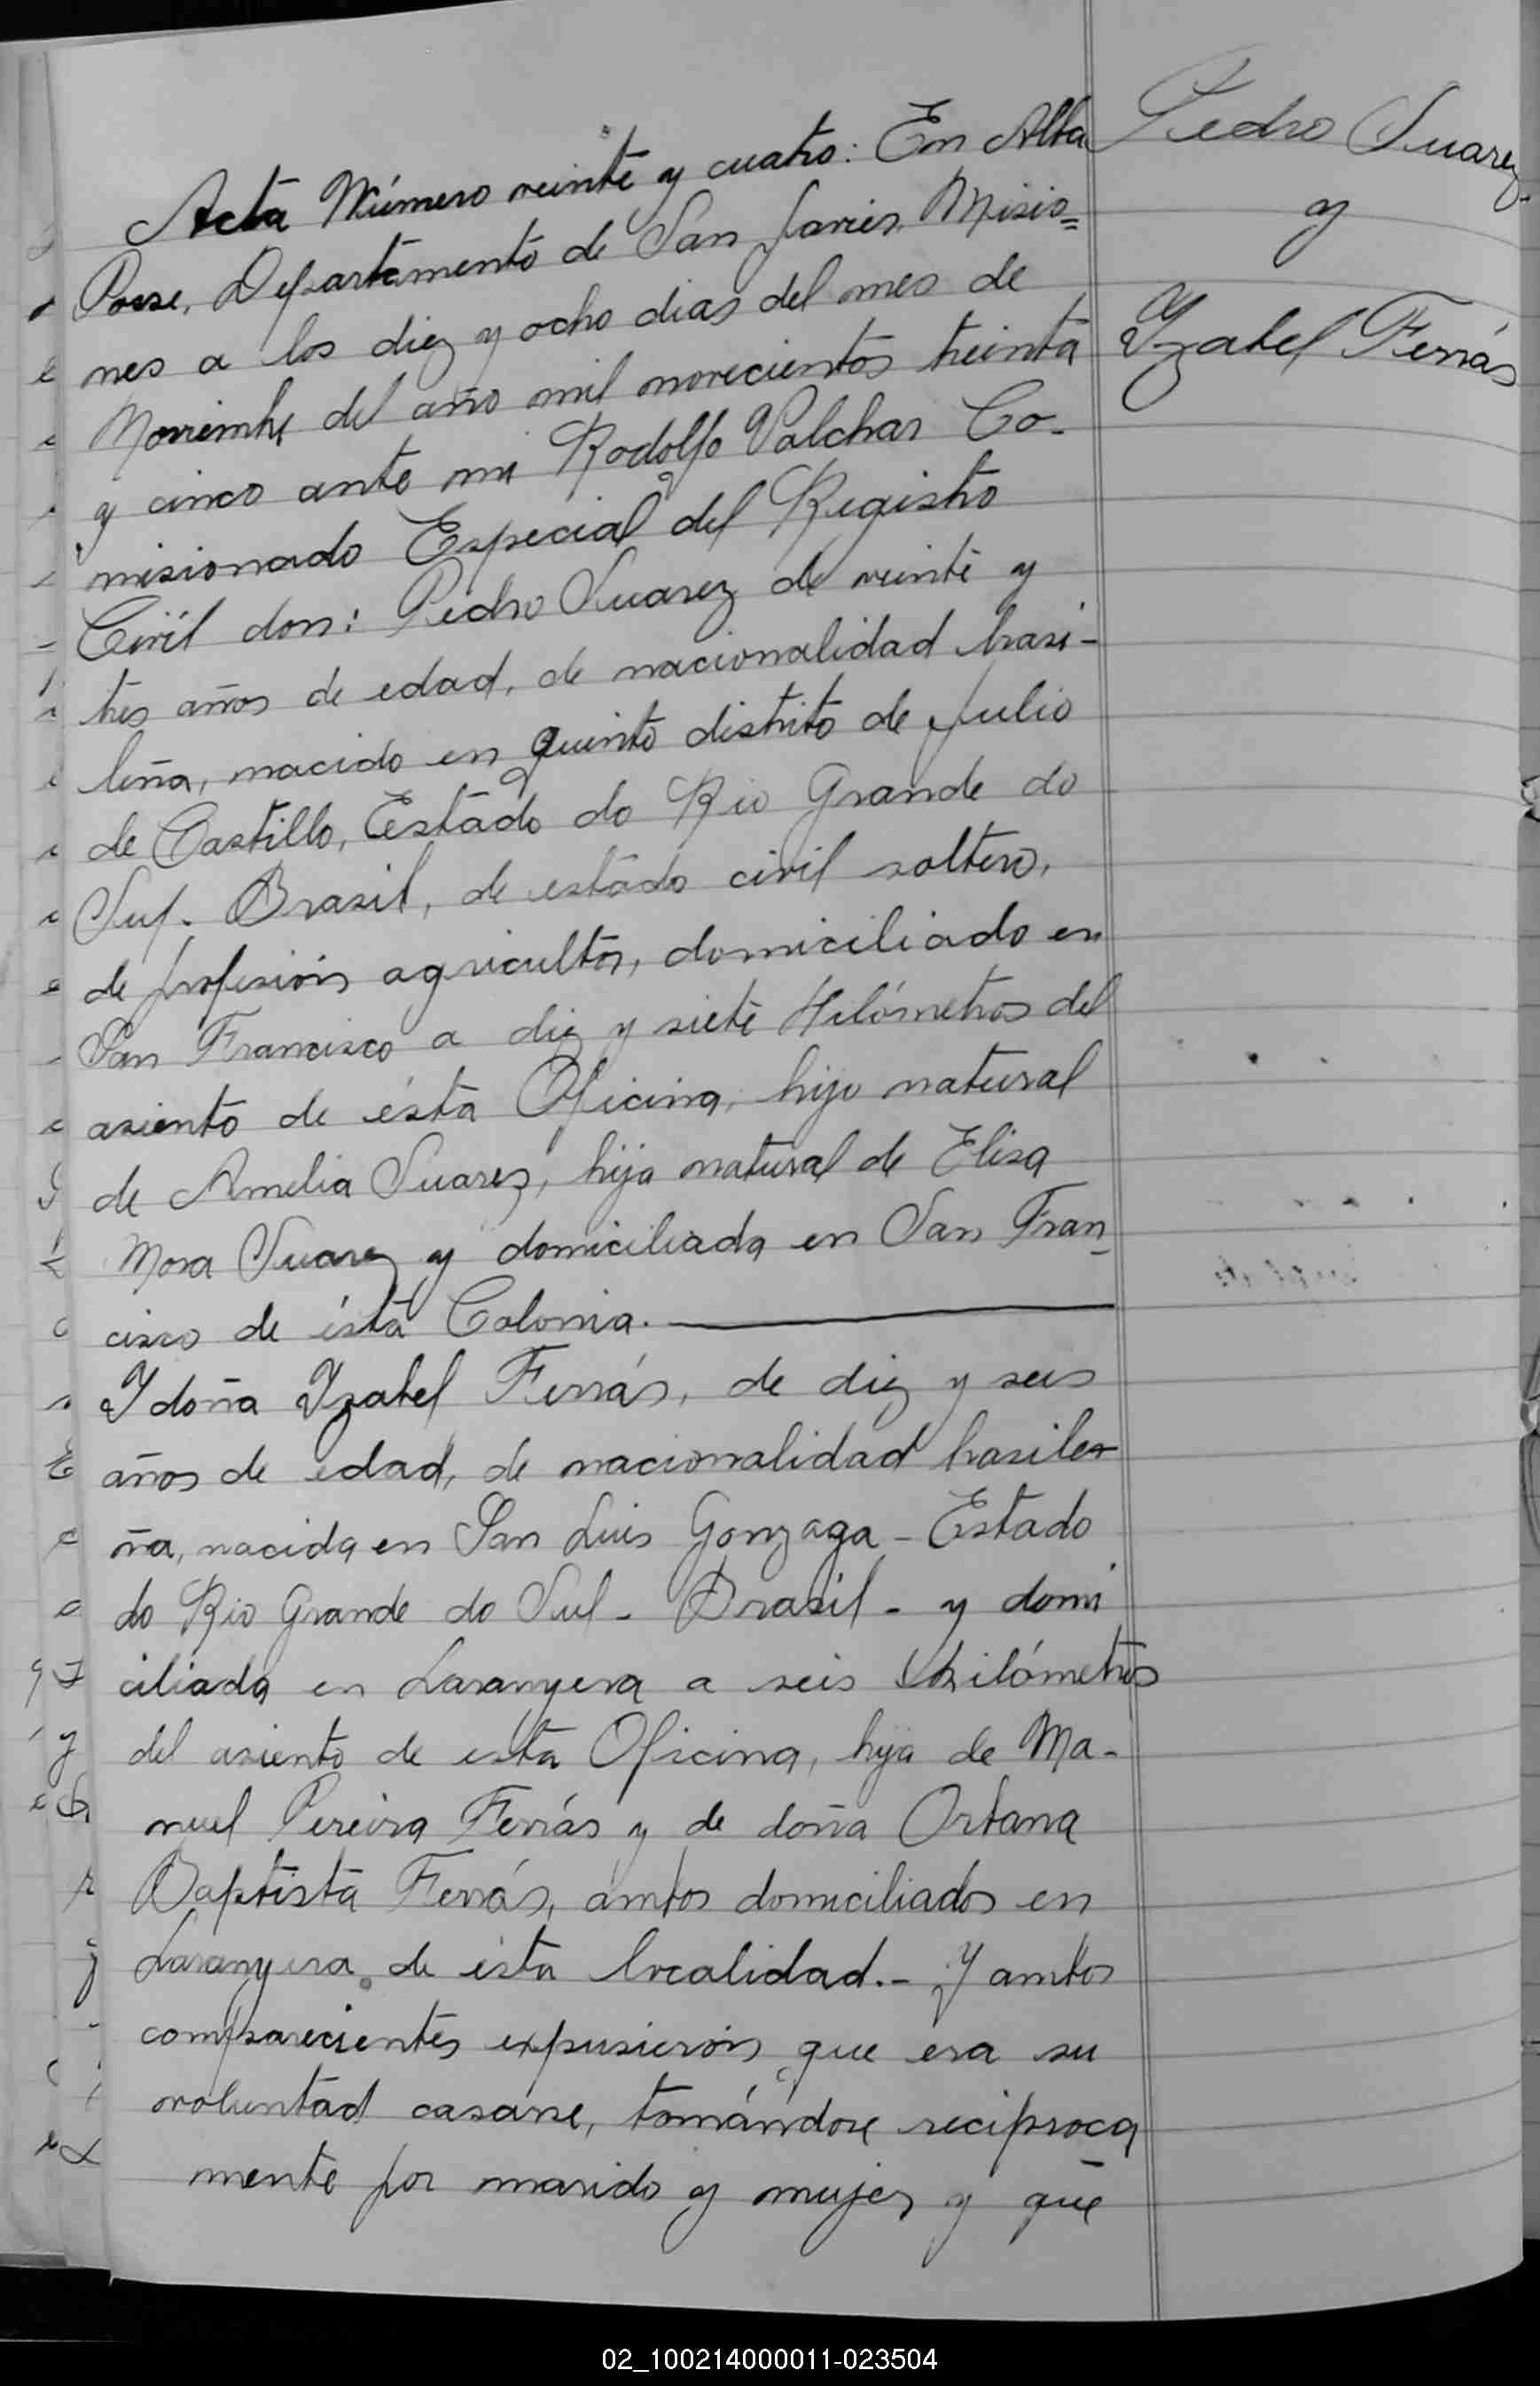 Pedro Suarez
y
Yzabel Ferrás
Acta Número veinte y cuatro: En Alba
Posse, Departamento de San Javier. Misio=
nes a los diez y ocho dias del mes de
Noviembre del año mil novecientos treinta
y cinco ante mi Rodolfo Valchar Co-
misionado Especial del Registro
Civil don: Pedro Suarez de veinte y
tres años de edad, de nacionalidad brasi-
leña, nacido en quinto distrito de Julio
de Castillo, Estado do Rio Grande do
Sul. Brasil, de estado civil soltero,
de profesión agricultor, domiciliado en
San Francisco a diez y siete Kilómetros del
asiento de ésta Oficina, hijo natural
de Amelia Suarez, hija natural de Elisa
Mora Suarez y domiciliada en San Fran-
cisco de ésta Colonia.
Y doña Yzabel Ferrás, de diez y seis
años de edad, de nacionalidad brasile-
ña, nacida en San Luis Gonzaga - Estado
do Rio Grande do Sul - Brasil - y domi
ciliada en Laranyera a seis kilómetros
del asiento de esta Oficina, hija de Ma-
nuel Pereira Ferrás y de doña Ortana
Baptista Ferrás, ambos domiciliados en
Laranyera de ésta localidad.- Y ambos
comparecientes expusierón que era su
voluntad casarse, tomándose reciproca
mente por marido y mujer y que
02_100214000011-023504